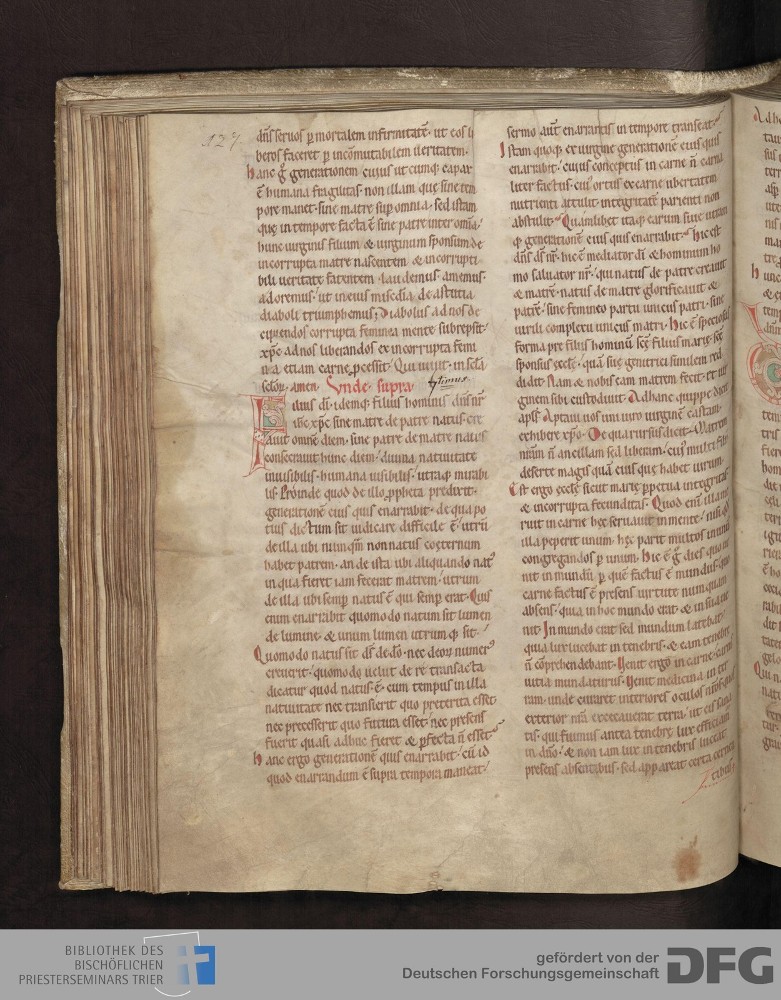 127
dn̄s seruos ꝑ mortalem infirmitatē. ut eos li
beros faceret ꝑ incōmutabilem ueritatem.
hanc g̊ generationem cuius ut cunq; capax
ē humana fragilitas. non illam quę sine tem
pore manet. sine matre suꝑ omnia. sed istam
quę in tempore facta ē sine patre inter om̄ia.
hunc uirginis filium & uirginum sponsum de
incorrupta matre nascentem & incorrupti
bili ueritate fatentem. laudemus. amemus.
adoremus. ut in eius mīsc̄dia de astutia
diaboli triumphemus; Diabolus ad nos de
cipiendos corrupta feminea mente subrepsit.
xp̄c ad nos liberandos ex incorrupta femi
nea etiam carne ꝓcessit. Qui uiuit. in sc̄la
sc̄lor̄. amen. Vnde. supra.
Filius dī. idemq; filius hominis dn̄s nr̄
ih̄c xp̄c sine matre de patre natus cre
auit omnē diem. sine patre de matre natus
consecrauit hunc diem. diuina natiuitate
inuisibilis. humana uisibilis. utraq; mirabi
lis. Proinde quod de illo ꝓpheta predixit.
generationē eius quis enarrabit. de qua po
tius dictum sit iudicare difficile ē. utrū
de illa ubi nunquā non natus coęternum
habet patrem. an de ista ubi aliquando nat᷒
in qua fieret iam fecerat matrem. utrum
de illa ubi semꝑ natus ē qui semꝑ erat. Quis
enim enarrabit quomodo natum sit lumen
de lumine. & unum lumen utrumq; sit.
Quomodo natus sit ds̄ de dō. nec deor̄ numer᷒
creuerit. quomodo uelut de re transacta
dicatur quod natus ē. cum tempus in illa
natiuitate nec transierit quo preterita esset
nec precesserit quo futura esset. nec presens
fuerit quasi adhuc fieret & ꝑfecta n̄ esset.
hanc ergo generationē quis enarrabit. cū id
quod enarrandum ē supra tempora maneat.
sermo aut̄ enarrantis in tempore transeat.
Istam quoq; ex uirgine generationē eius quis
enarrabit. cuius conceptus in carne n̄ carna
liter factus. eius ortus ex carne ubertatem
nutrienti attulit. integritatē parienti non
abstulit. Quamlibet itaq; earum siue utran
q; generationē eius quis enarrabit. Hic est
dn̄s ds̄ nr̄. hic ē mediator dī & hominum ho
mo saluator nr̄. qui natus de patre creauit
& matrē. natus de matre glorificauit &
patrē. sine femineo partu unicus patri. sine
uirili complexu unicus matri. Hic ē speciosus
forma pre filiis hominū sc̄ę filius marię. sc̄ę
sponsus ęcc̄lę. quā suę genitrici similem red
didit. Nam & nobis eam matrem fecit. & uir
ginem sibi custodiuit. Ad hanc quippe dicit
apl̄s. Aptaui uos uni uiro uirginē castam
exhibere xp̄o. De qua rursus dicit. Matrem
nr̄am n̄ ancillam sed liberam. cui᷒ multi filii
desertę magis quā eius quę habet uirum.
Est ergo ęcc̄lę sicut marię ꝑpetua integritas
& incorrupta fecunditas. Quod enī illa me
ruit in carne hęc seruauit in mente. nisi qd̄
illa peperit unum. hęc parit multos in unū
congregandos ꝑ unum. Hic ē g̊ dies quo ue
nit in mundū. ꝑ quē factus ē mundus. quo
carne factus ē presens uirtute numquam
absens. quia in hoc mundo erat. & in sua ue
nit. In mundo erat sed mundum latebat.
quia lux lucebat in tenebris. & eam tenebrę
n̄ cōprehendebant. Venit ergo in carne. carnis
uitia mundaturus. Venit medicina in ter
ram. unde curaret interiores oculos nr̄os. quos
exterior nr̄a excecauerat terra. ut eis sana
tis. qui fuimus antea tenebrę. lux efficiam̄
in dn̄o. & non iam lux in tenebris luceat
presens absentibus. sed appareat certa cernen
tibus.
BIBLIOTHEK DES
BISCHÖFLICHEN
PRIESTERSEMINARS TRIER
gefördert von der
Deutschen Forschungsgemeinschaft
DFG